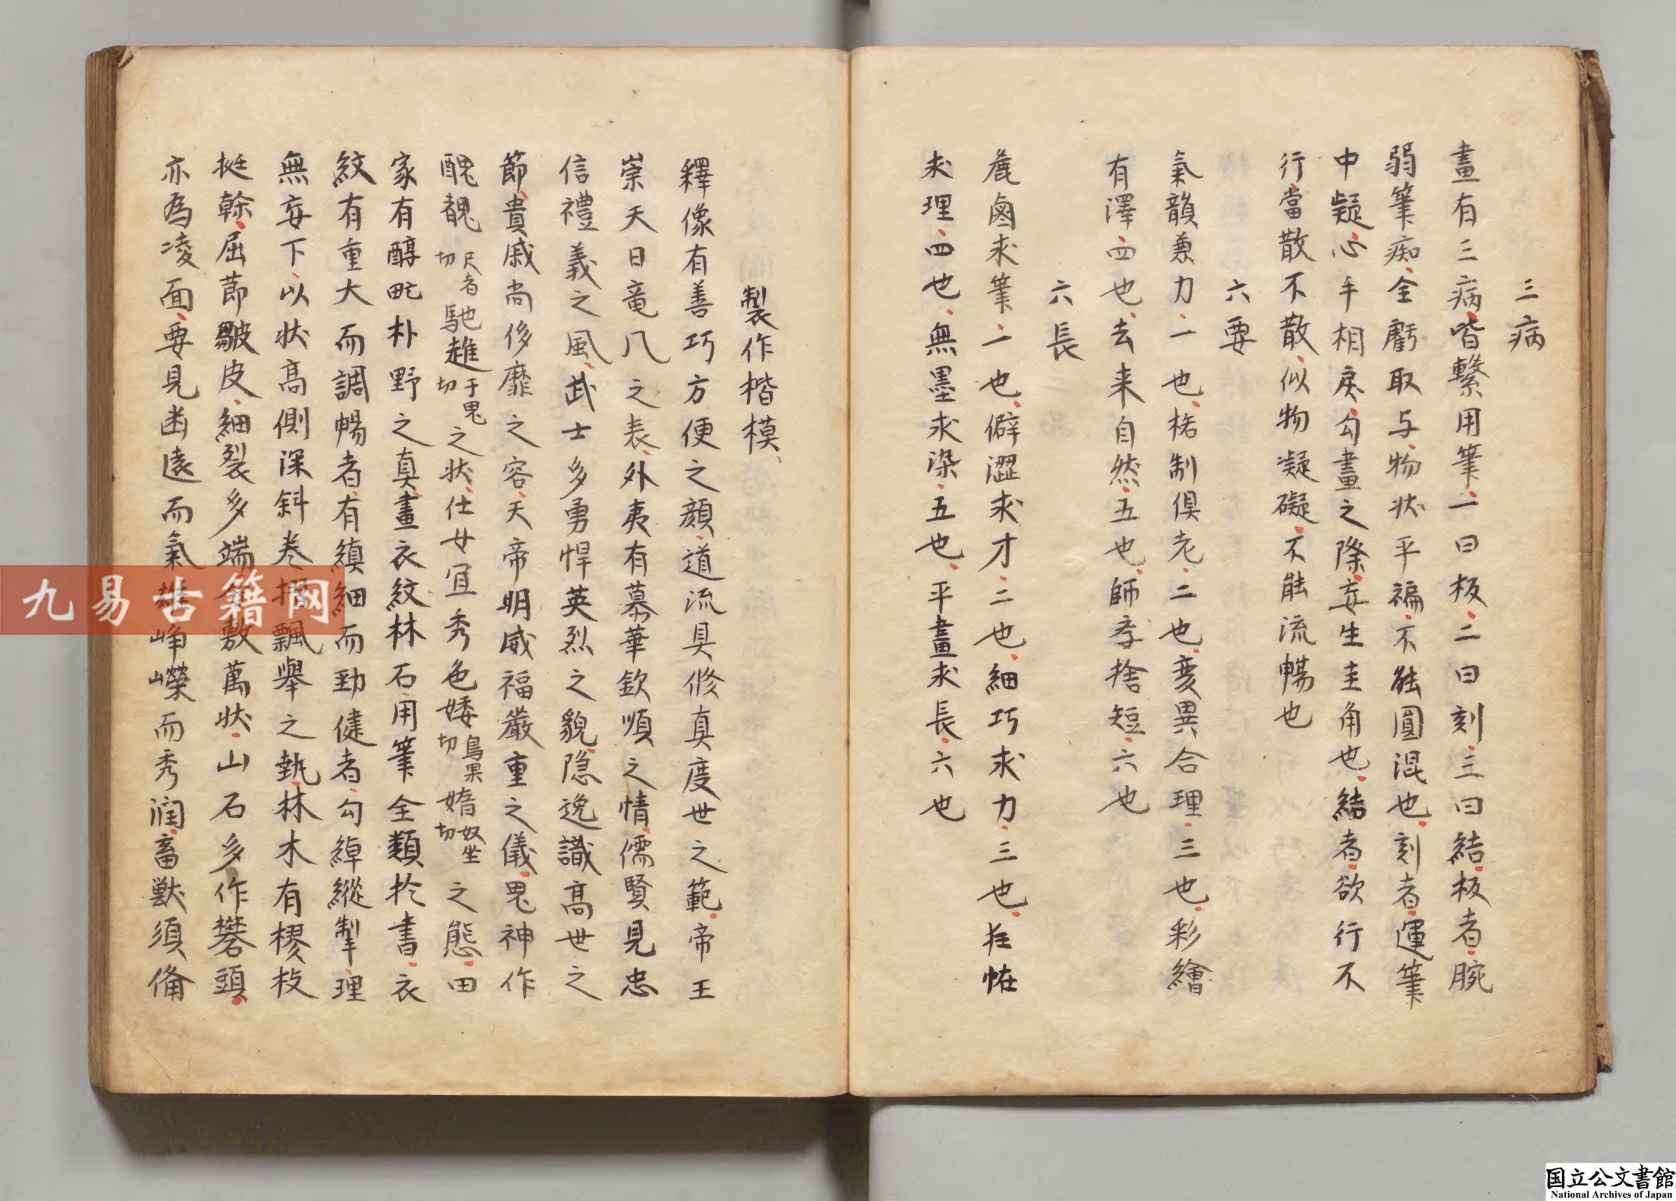 三病
畫有三病、皆繫用筆、一曰板、二曰刻、三曰結、板者、腕
弱筆痴、全虧取与、物状平褊、不能圓混也、刻者、運筆
中疑、心手相戾、勾畫之際、妄生圭角也、結者、欲行不
行、當散不散、似物凝礙、不能流暢也
六要
氣韻兼力、一也、格制俱老、二也、変異合理、三也、彩繪
有澤、四也、去来自然、五也、師学捨短、六也
六長
麁鹵求筆、一也、僻澀求才、二也、細巧求力、三也、狂怪
求理、四也、無墨求染、五也、平畫求長、六也
製作楷模、
釋像有善巧方便之顔、道流具修真度世之範、帝王
崇天日竜凡之表、外夷有慕華欽順之情、儒賢見忠
信禮義之風、武士多勇悍英烈之貌、隠逸識高世之
節、貴戚尚侈靡之容、天帝明威福嚴重之儀、鬼神作
醜䰩尺者切馳趡于鬼切之状、仕女宜秀色婑烏果切媠奴坐切之態、田
家有醇甿朴野之真、畫衣紋林石用筆全類於書、衣
紋有重大而調暢者、有縝細而勁健者、勾綽縱掣、理
無妄下、以状高側深斜卷摺飄舉之執、林木有樛枝
挺幹、屈莭皺皮、細裂多端、分敷萬状、山石多作礬頭、
亦為凌面、要見幽遠而氣雄、崢嶸而秀潤、畜獸須俻
九易古籍网
国立公文書館
National Archives of Japan